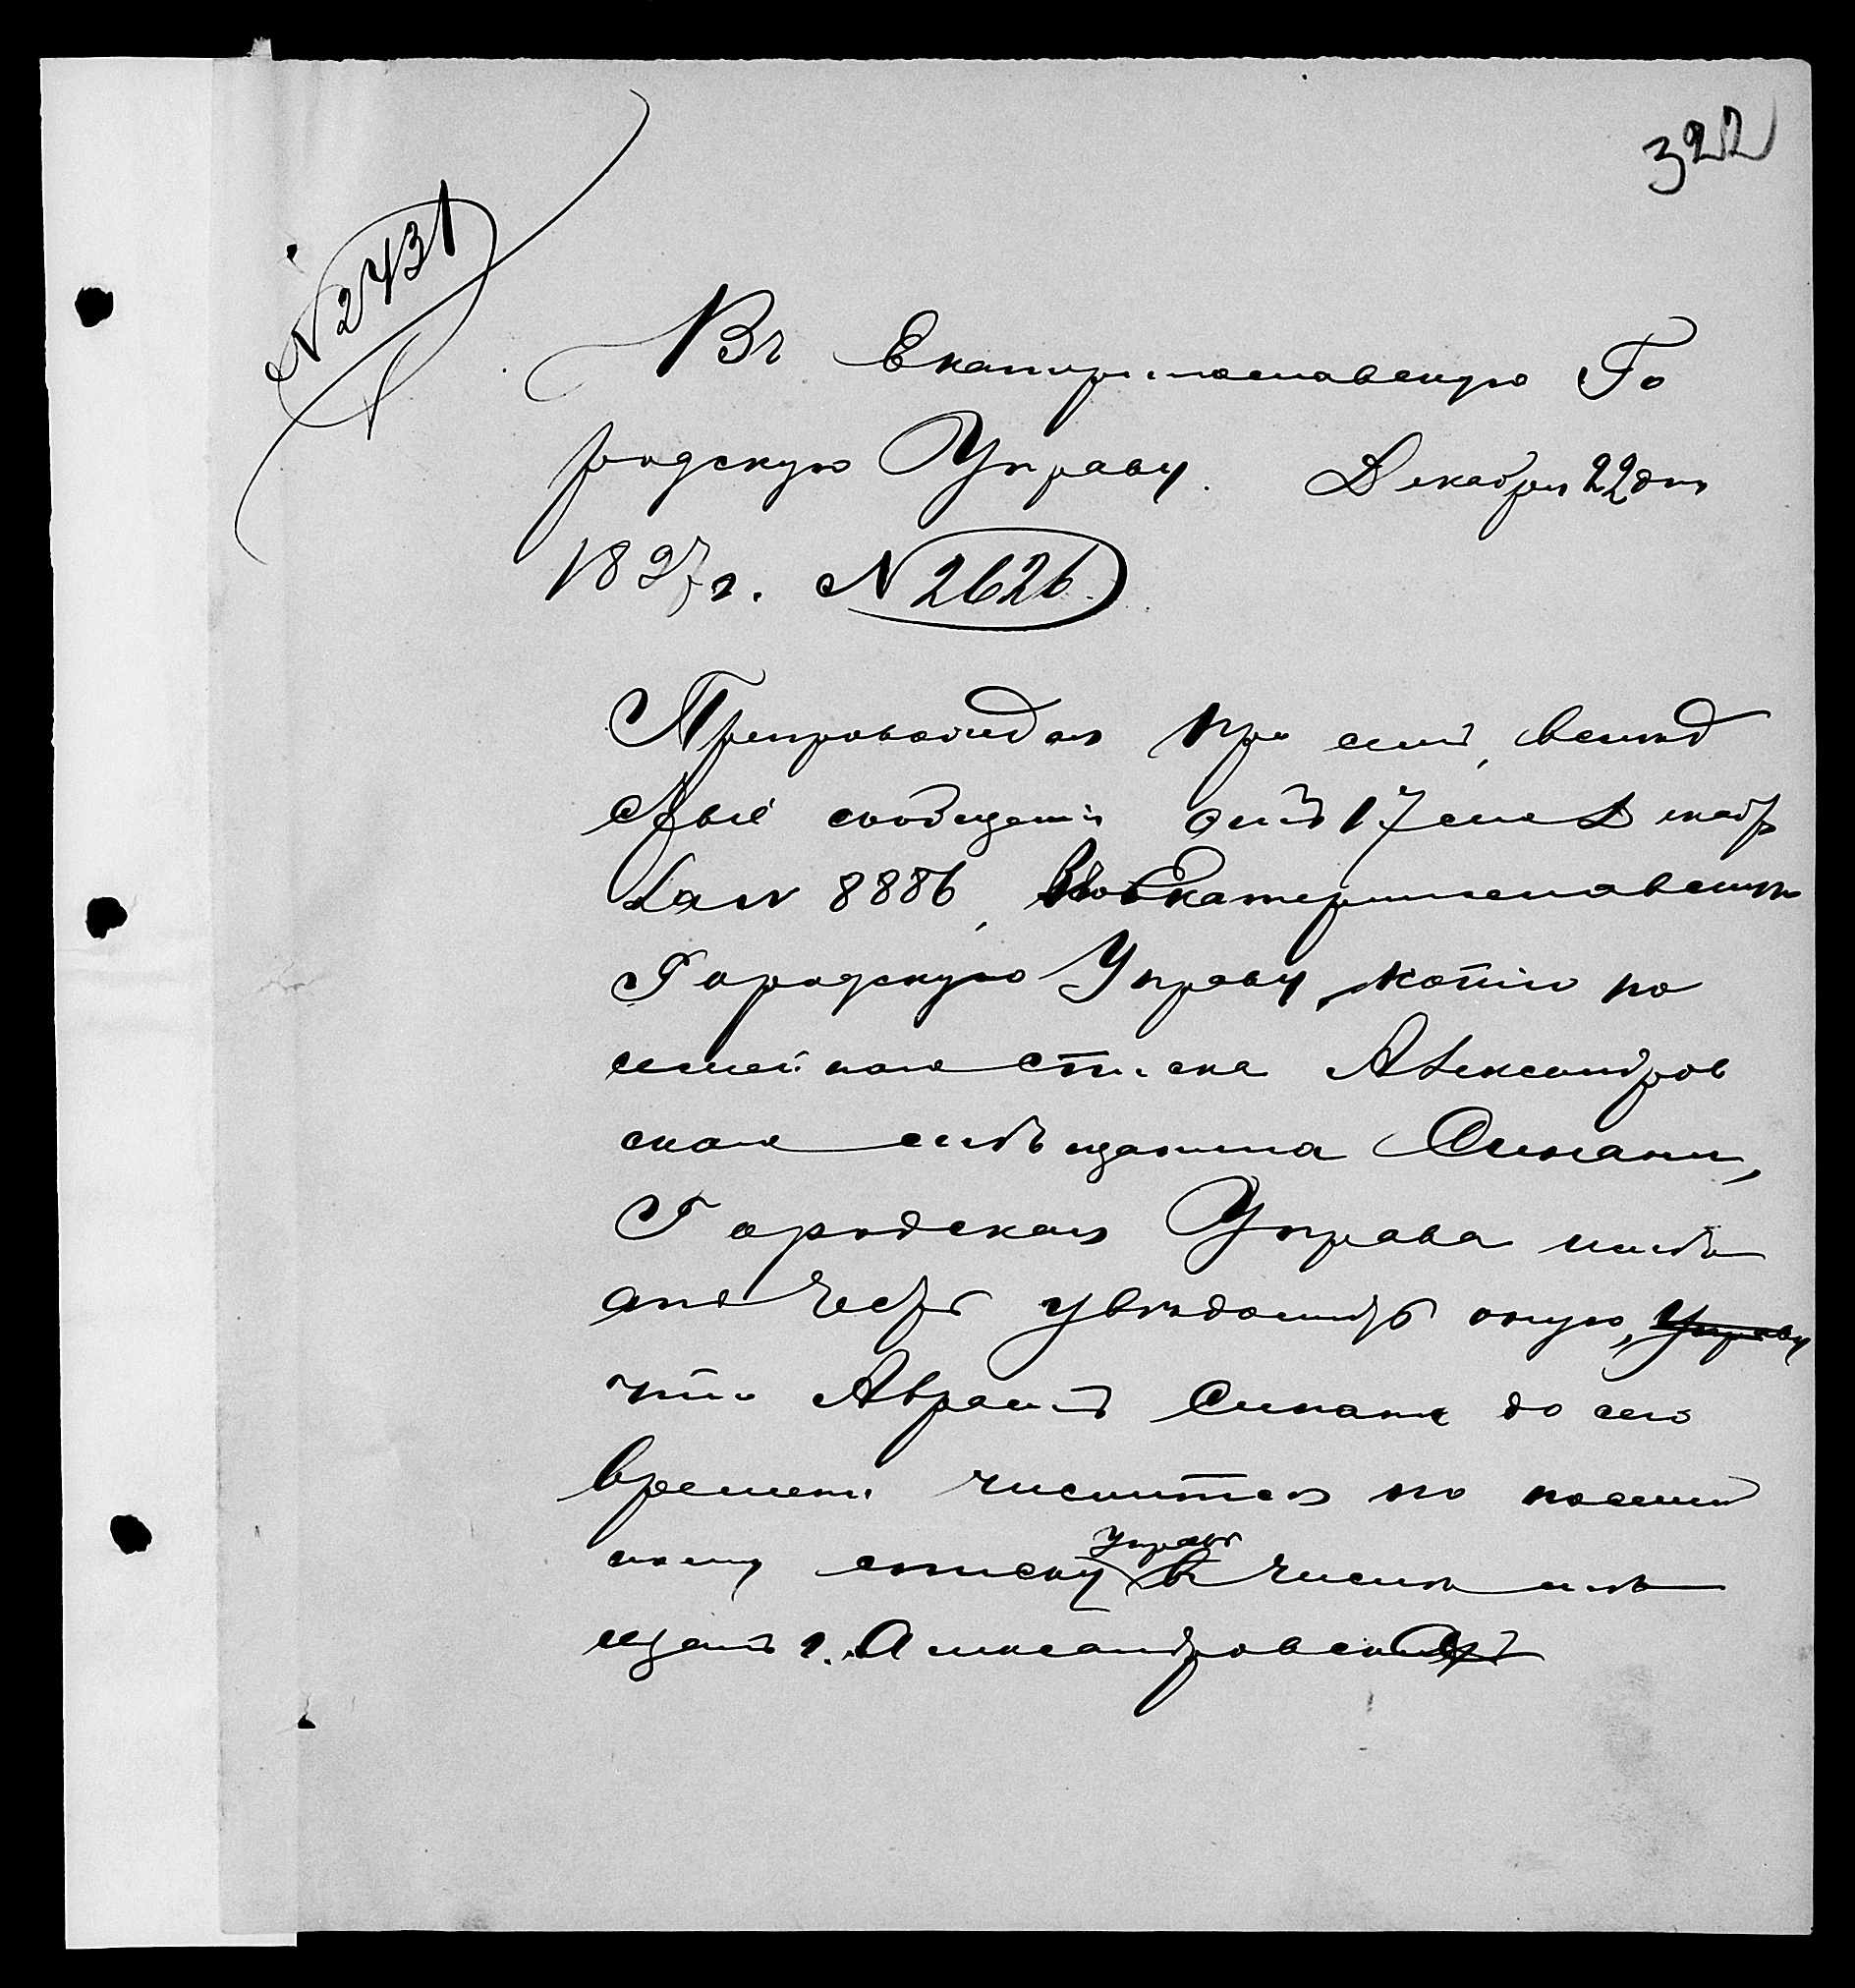 322
N 2431
Въ Екатеринославскую Го
родскую Управу. Декабря 22 дня
1897 г. N 2626
Препровождая при семъ, вслѣд
ствіе сообщенія отъ 17 сего Декабр
за N 8886, въ Екатеринославскую
Городскую Управу, копію по
семейнаго списка Александров
скаго мѣщанина Синани,
Городская Управа имѣ
етъ честь увѣдомить оную, Управу
что Авраамъ Синани до сего
времени числится по посемей
ному списку Управы въ числѣ мѣ
щанъ г. Александровска